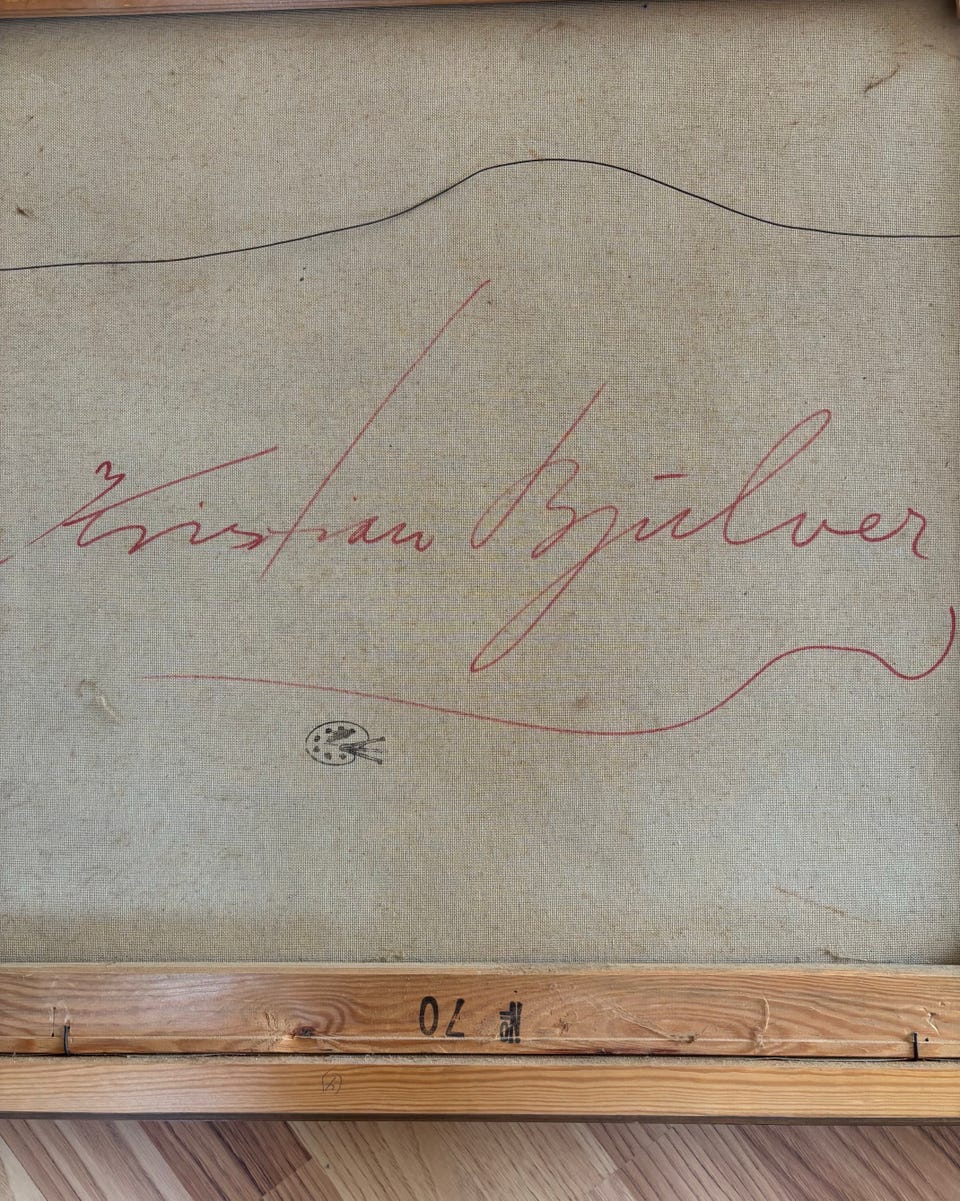 Kristian Bjulver
70